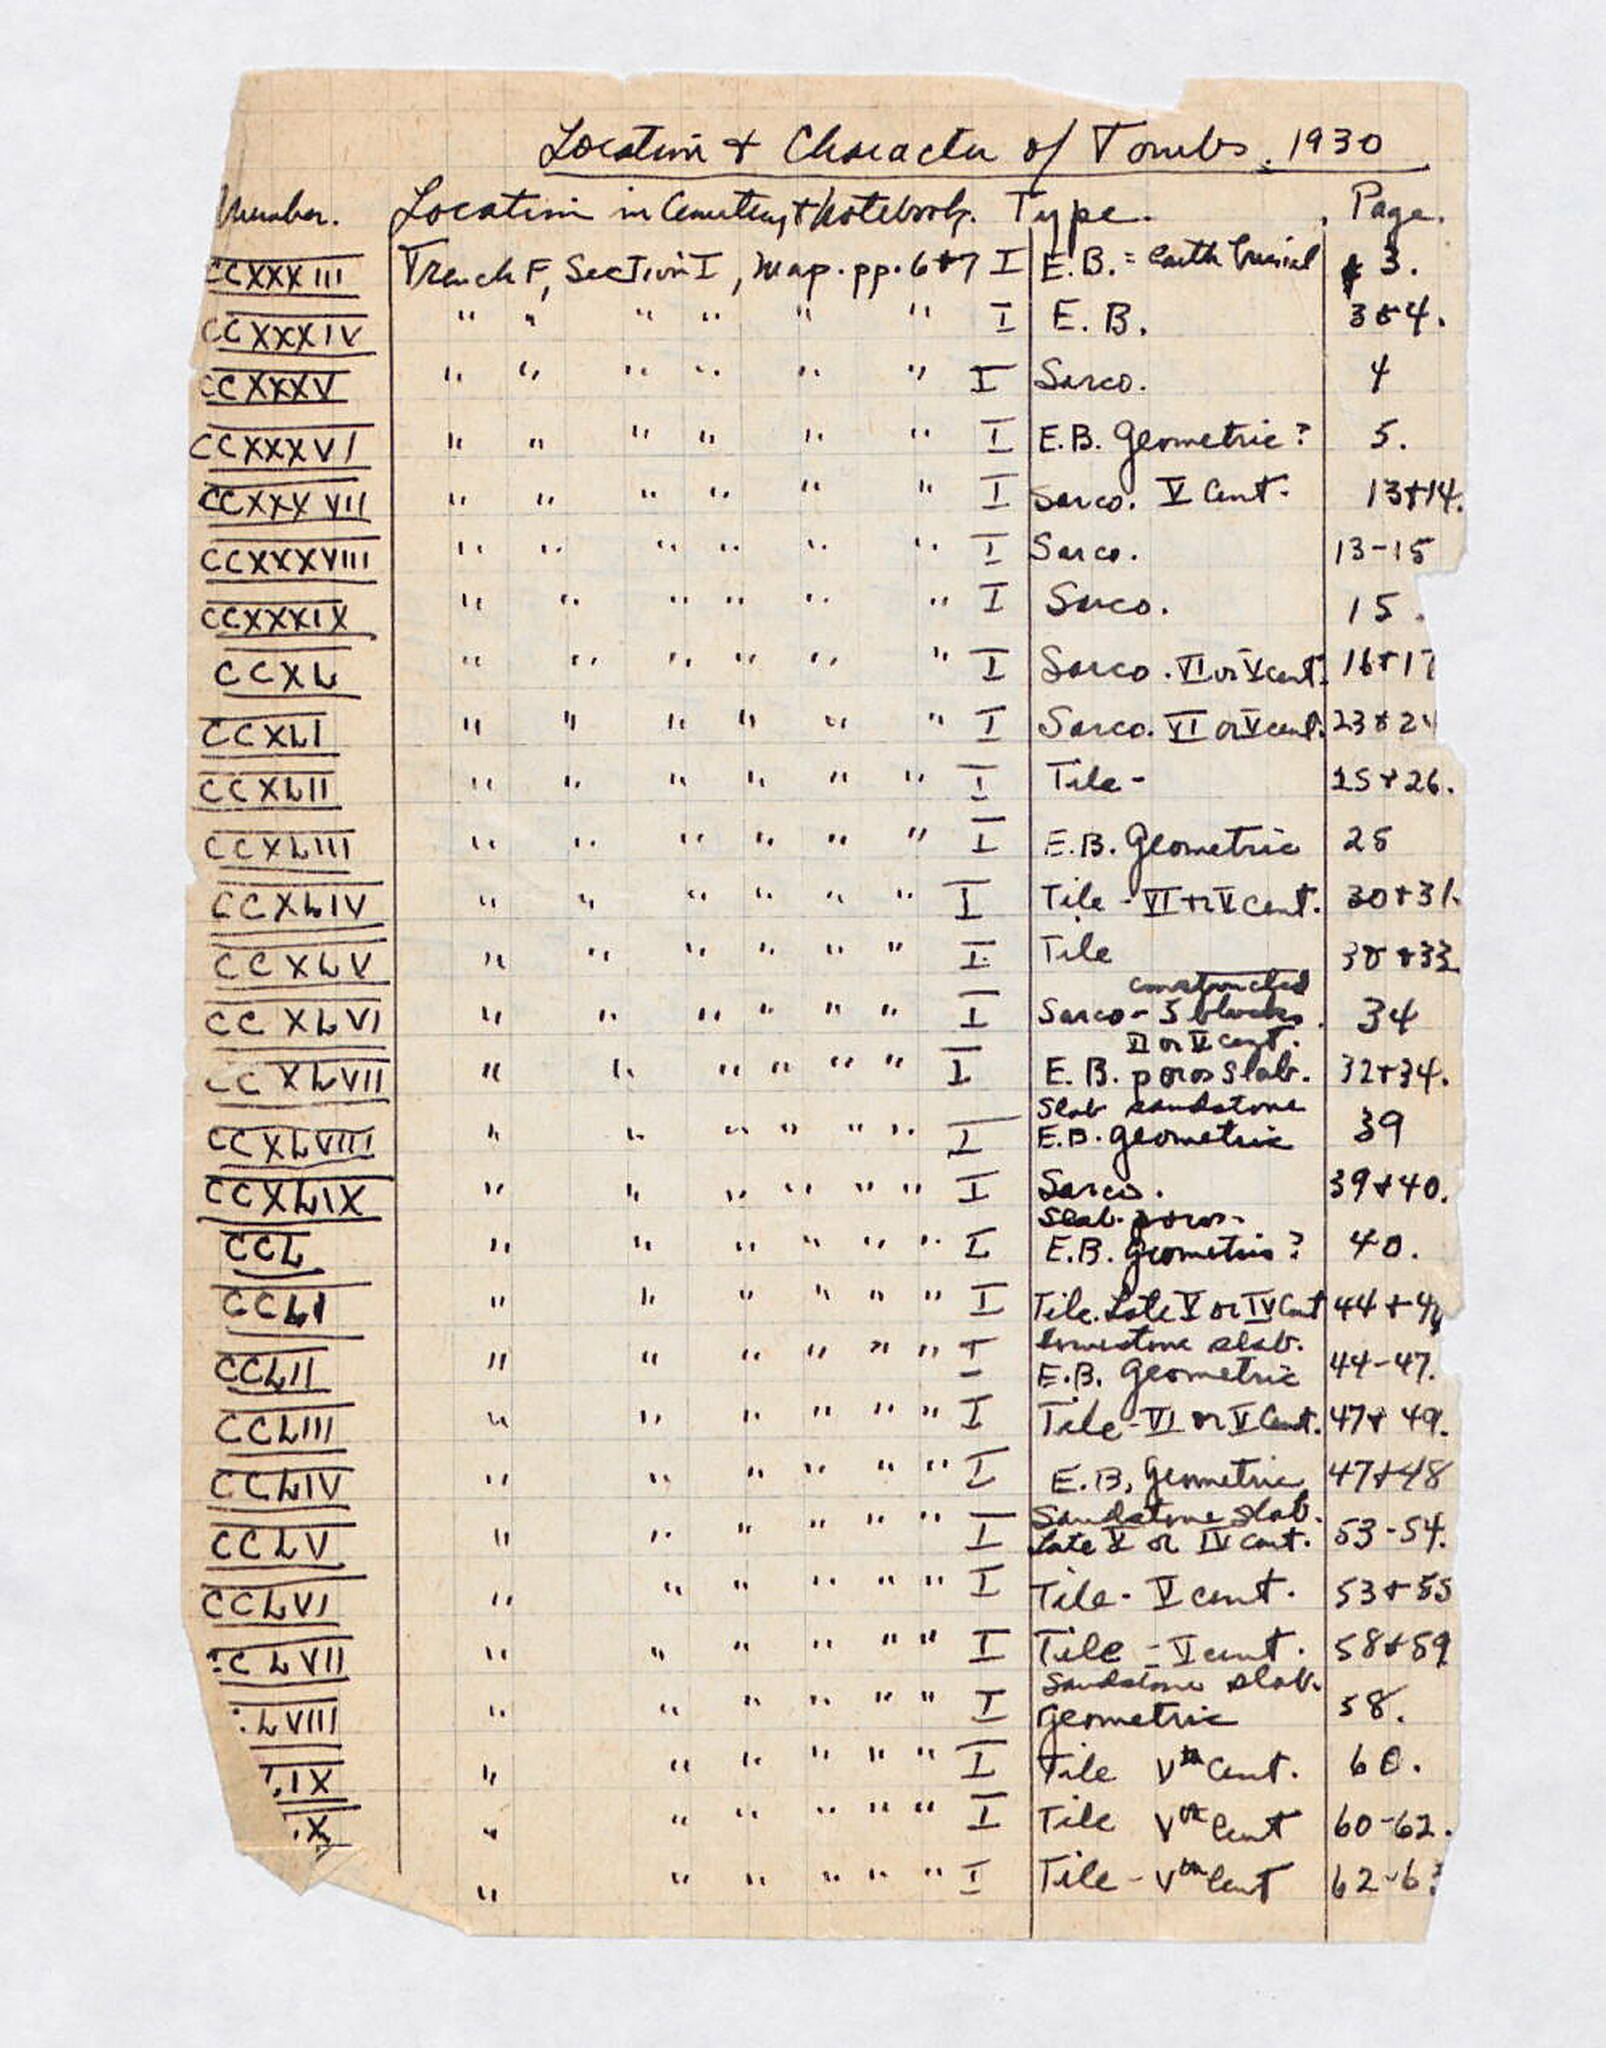 Location + Character of Tombs. 1930
Number. Location in Cemetery + Notebook. Type. Page.
CCXXXIII Trench F, Section I, map. pp. 6+7 I E.B. = Earth burial 3.
CCXXXIV " " " " " " I E. B. 3+4.
CCXXXV " " " " " " I Sarco. 4
CCXXXVI " " " " " " I E.B. Geometric? 5.
CCXXXVII " " " " " " I Sarco. V Cent. 13+14.
CCXXXVIII " " " " " " I Sarco. 13-15
CCXXXIX " " " " " " I Sarco. 15.
CCXL " " " " " " I Sarco. VI or V cent. 16+17
CCXLI " " " " " " I Sarco. VI or V cent. 23+24
CCXLII " " " " " " I Tile - 25+26.
CCXLIII " " " " " " I E.B. Geometric 25
CCXLIV " " " " " " I Tile - VI or V Cent. 30+31.
CCXLV " " " " " " I Tile +33
constructed
CCXLVI " " " " " " I Sarco - 5 blocks. 34
VI or V cent.
CCXLVII " " " " " " I E. B. poros slab. 32+34.
Slab sandstone
CCXLVIII " " " " " " I E.B. Geometric 39
CCXLIX " " " " " " I Sarco. 39+40.
Slab. poros.
CCL " " " " " " I E.B. Geometric? 40.
CCLI " " " " " " I Tile. Late V or IV Cent 44+
limestone slab.
CCLII " " " " " " I E.B. Geometric 44-47.
CCLIII " " " " " " I Tile - VI or V Cent. 47+49.
CCLIV " " " " " " I E.B. Geometric 47+48
Sandstone slab.
CCLV " " " " " " I Late V or IV Cent. 53-54.
CCLVI " " " " " " I Tile - V cent. 53+55
C LVII " " " " " " I Tile - V cent. 58+59
Sandstone slab.
LVIII " " " " " " I Geometric 58.
IX " " " " " " I Tile Vth Cent. 60.
X " " " " " " I Tile Vth Cent 60-62.
" " " " " " I Tile - Vth Cent 62-6